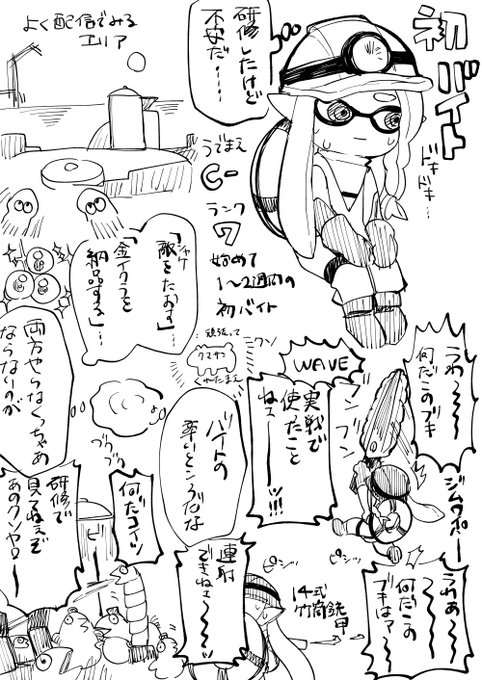 初バイト
ドキドキ…
研修したけど
不安だ……
よく配信でみる
エリア
うでまえ
C-
ランク
7
始めて
1〜2週間の
初バイト
「敵をたおす」…
シャケ
「金イクラを
納品する」…
両方やらなくっちゃあ
ならないのが
バイトの
辛いところだな
頑張って
クマサン
くれたまえ
WAVE
うわ〜〜〜
何だこのブキ
実戦で
使たこと
ねェーッ!!!
ブンブン
ジムワイパー
ブクブク
何だコイツ
研修で
見てねェぞ
あのクソヤロー
連射
できねェ〜〜
ピシッ
ピシッ
14式
竹筒銃
甲
うわあ〜〜〜
何だこの
ブキはァ〜